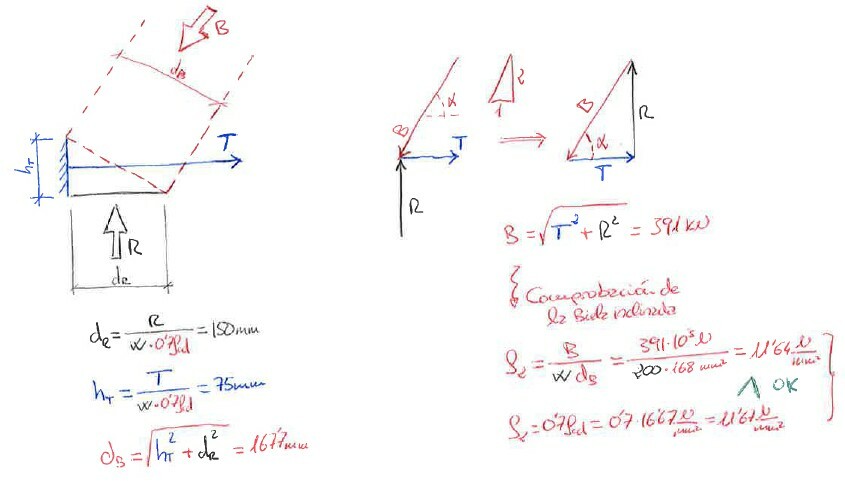 B
d_B
T
h_T
R
d_R
α
B
T
R
2
1
B
α
T
R
d_R = R / (W·0'7f_cd) = 150mm
h_T = T / (W·0'7f_cd) = 75mm
d_B = √(h_T² + d_R²) = 167'7mm
B = √(T² + R²) = 391kN
Comprobación de
la Biela inclinada
f_2 = B / (W d_B) = 391·10³N / (200·168 mm²) = 11'64 N/mm²
∧ OK
f_2 = 0'7f_cd = 0'7·16'67 N/mm² = 11'67 N/mm²